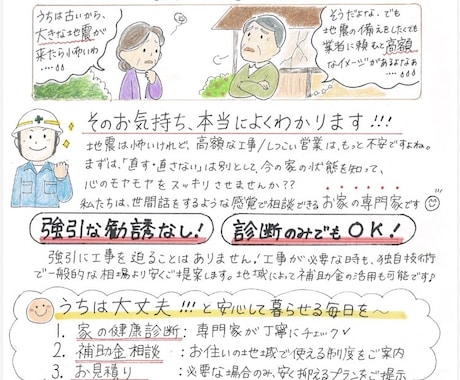 うちは古いから、
大きな地震が
来たら小怖いわ
‥‥
そうだよなぁ、でも
地震の備えをしたくても
業者に頼むと高額
なイメージがあるよなぁ
‥‥
そのお気持ち、本当によくわかります!!!
地震は怖いけれど、高額な工事/しつこい営業は、もっと不安ですよね。
まずは、「直す・直さない」は別として、今の家の状態を知って、
心のモヤモヤをスッキリさせませんか??
私たちは、世間話をするような感覚で相談できるお家の専門家です
強引な勧誘なし!
診断のみでもOK!
強引に工事を迫ることはありません!工事が必要な時も、独自技術
で一般的な相場より安くご提案します。地域によって補助金の活用も可能です♪
うちは大丈夫!!!と安心して暮らせる毎日を〜
1. 家の健康診断:専門家が丁寧にチェック✓
2. 補助金相談:お住いの地域で使える制度をご案内
3. お見積り:必要な場合のみ、安く抑えるプランをご提示